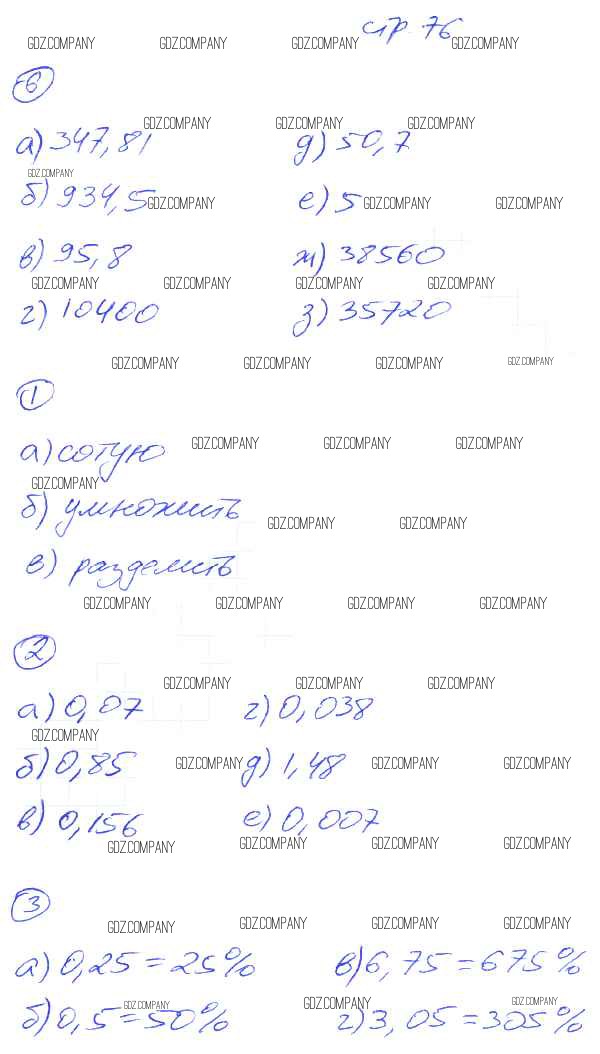 стр. 76
GDZ.COMPANY GDZ.COMPANY GDZ.COMPANY GDZ.COMPANY
6
GDZ.COMPANY GDZ.COMPANY GDZ.COMPANY
а) 347,81 д) 50,7
GDZ.COMPANY
б) 934,5 GDZ.COMPANY е) 5 GDZ.COMPANY GDZ.COMPANY
в) 95,8 ж) 38560
GDZ.COMPANY GDZ.COMPANY GDZ.COMPANY GDZ.COMPANY
г) 10400 з) 35720
GDZ.COMPANY GDZ.COMPANY GDZ.COMPANY GDZ.COMPANY
1
а) сотую GDZ.COMPANY GDZ.COMPANY GDZ.COMPANY
GDZ.COMPANY
б) умножить
GDZ.COMPANY GDZ.COMPANY
в) разделить
GDZ.COMPANY GDZ.COMPANY GDZ.COMPANY GDZ.COMPANY
2
GDZ.COMPANY GDZ.COMPANY GDZ.COMPANY
а) 0,07 г) 0,038
GDZ.COMPANY
б) 0,85 GDZ.COMPANY д) 1,48 GDZ.COMPANY GDZ.COMPANY
в) 0,156 е) 0,007
GDZ.COMPANY GDZ.COMPANY GDZ.COMPANY GDZ.COMPANY
3
GDZ.COMPANY GDZ.COMPANY GDZ.COMPANY GDZ.COMPANY
а) 0,25 = 25% в) 6,75 = 675%
GDZ.COMPANY GDZ.COMPANY GDZ.COMPANY
б) 0,5 = 50% г) 3,05 = 305%